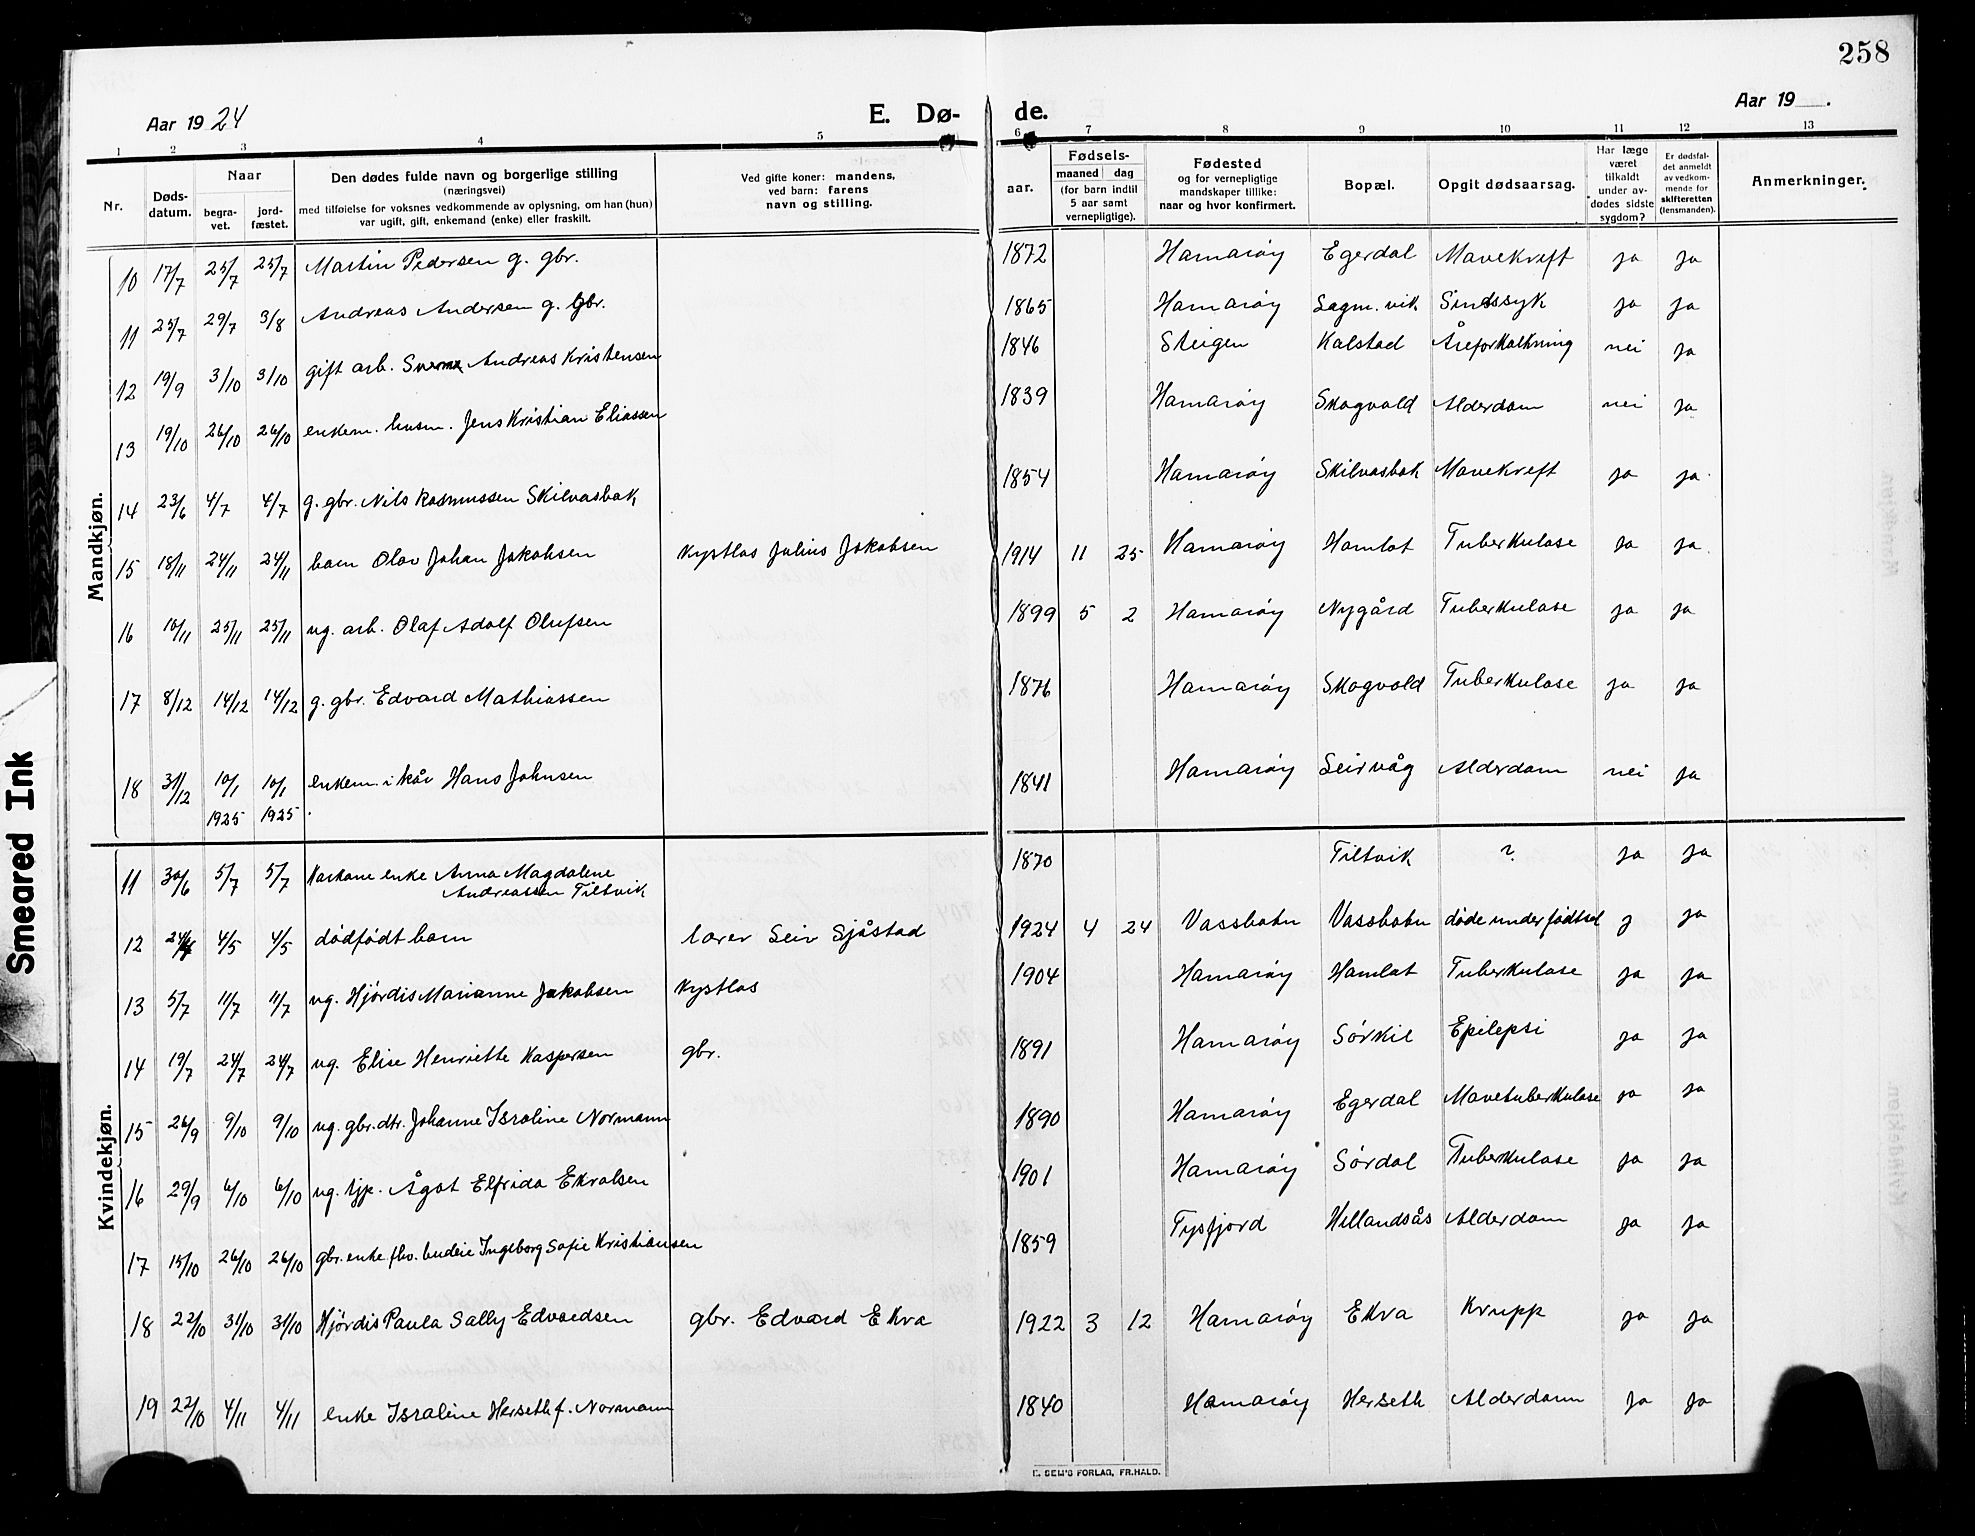 258
Aar 1924 E. Dø- de. Aar 19 .
1 2 3 4 5 6 7 8 9 10 11 12 13
Nr. Døds-datum. Naar begra-vet. jord-fæstet. Den dødes fulde navn og borgerlige stilling (næringsvei) med tilføielse for voksnes vedkommende av oplysning, om han (hun) var ugift, gift, enkemand (enke) eller fraskilt. Ved gifte koner: mandens, ved barn: farens navn og stilling. aar. Fødsels- maaned dag (for barn indtil 5 aar samt vernepligtige). Fødested og for vernepligtige mandskaper tillike: naar og hvor konfirmert. Bopæl. Opgit dødsaarsag. Har læge været tilkaldt under av-dødes sidste sygdom? Er dødsfal-det anmeldt av vedkom-mende for skifteretten (lensmanden). Anmerkninger.
Mandkjøn.
10 17/7 25/7 25/7 Martin Pedersen g. gbr. 1872 Hamarøy Egerdal Mavekreft ja ja
11 25/7 29/7 3/8 Andreas Andersen g. gbr. 1865 Hamarøy Lagm. vik Sindssyk ja ja
12 19/9 3/10 3/10 gift arb. Andreas Kristensen 1846 Steigen Kalstad Åreforkalkning nei ja
13 19/10 26/10 26/10 enkem. husm. Jens Kristian Eliassen 1839 Hamarøy Skogvold Alderdom nei ja
14 23/6 4/7 4/7 g. gbr. Nils Rasmussen Skilvasbak 1854 Hamarøy Skilvasbak Mavekreft ja ja
15 18/11 24/11 24/11 barn Olav Johan Jakobsen Kystlos Julius Jakobsen 1914 11 25 Hamarøy Hamlot Tuberkulose ja ja
16 10/11 25/11 25/11 ug. arb. Olaf Adolf Olufsen 1899 5 2 Hamarøy Nygård Tuberkulose ja ja
17 8/12 14/12 14/12 g. gbr. Edvard Mathiassen 1876 Hamarøy Skogvold Tuberkulose ja ja
18 31/12 10/1 1925 10/1 1925 enkem. i kår Hans Johnsen 1841 Hamarøy Seirvåg Alderdom nei ja
Kvindekjøn.
11 30/6 5/7 5/7 Karkone enke Anna Magdalene Andreassen Tiltvik 1870 Tiltvik ? ja ja
12 24/4 4/5 4/5 dødfødt barn lærer Seiv Sjåstad 1924 4 24 Vassbotn Vassbotn døde under fødtsel j ja
13 5/7 11/7 11/7 ug. Hjørdis Marianne Jakobsen Kystlos 1904 Hamarøy Hamlot Tuberkulose ja ja
14 19/7 24/7 24/7 ug. Elise Henriette Kaspersen gbr. 1891 Hamarøy Sørkil Epilepsi ja ja
15 26/9 9/10 9/10 ug. gbr. dtr. Johanne Israline Normann 1890 Hamarøy Egerdal Mavetuberkulose ja ja
16 29/9 6/10 6/10 ug. tjp. Ågot Elfrida Ekralsen 1901 Hamarøy Sørdal Tuberkulose ja ja
17 15/10 26/10 26/10 gbr. enke fhv. budeie Ingeborg Sofie Kristiansen 1859 Tysfjord Hellandsås Alderdom ja ja
18 22/10 31/10 31/10 Hjørdis Paula Sally Edvardsen gbr. Edvard Ekra 1922 3 12 Hamarøy Ekra Krupp ja ja
19 22/10 4/11 4/11 enke Israline Herseth f. Normann 1840 Hamarøy Herseth Alderdom ja ja
E. SEM'S FORLAG, FR.HALD.
Smeared Ink